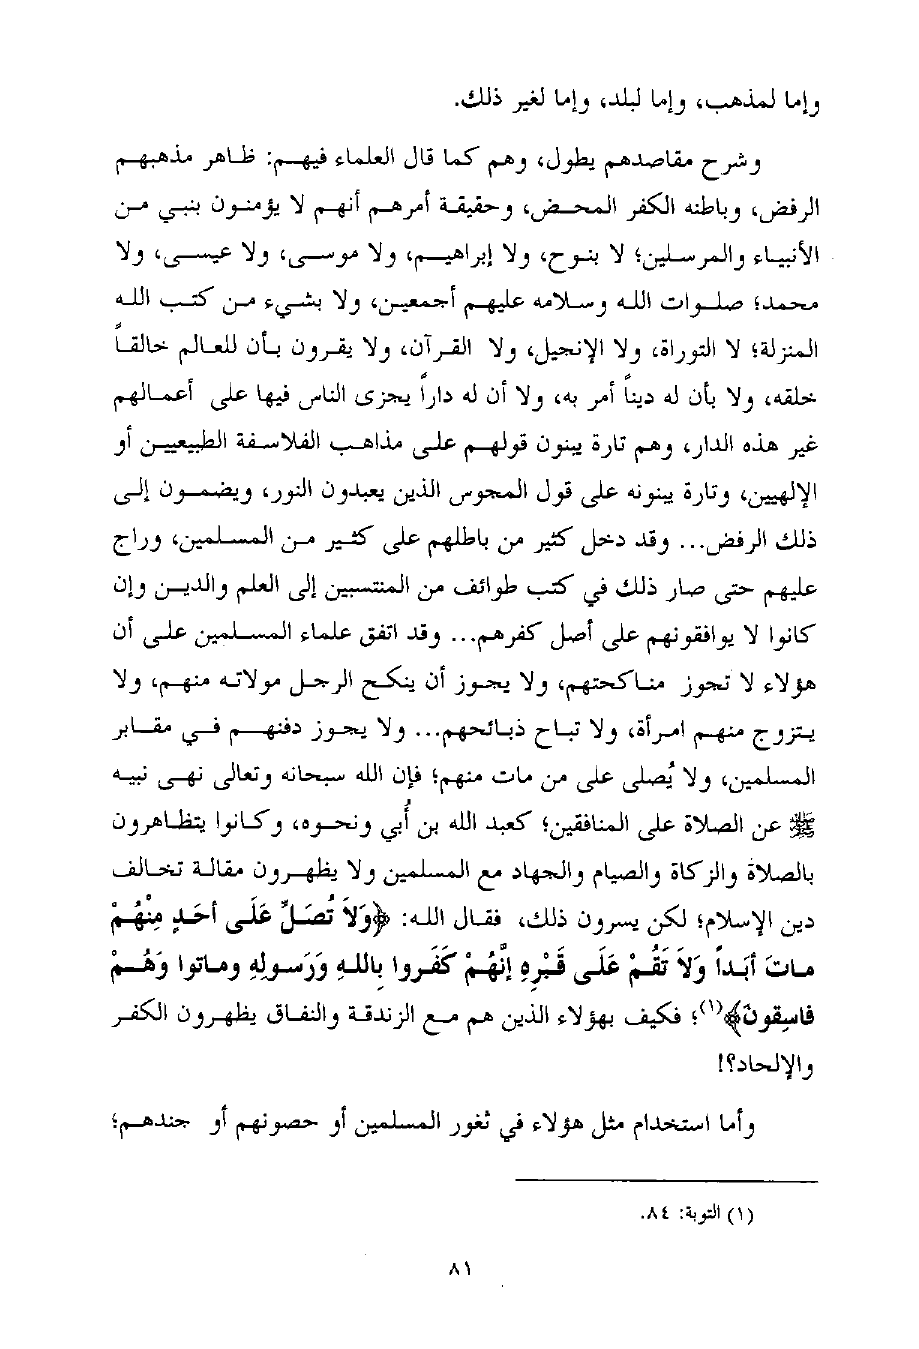 وإما لمذهب، وإما لبلد، وإما لغير ذلك.
وشرح مقاصدهم يطول، وهم كما قال العلماء فيهم: ظاهر مذهبهم
الرفض، وباطنه الكفر المحض، وحقيقة أمرهم أنهم لا يؤمنون بنبي من
الأنبياء والمرسلين؛ لا بنوح، ولا إبراهيم، ولا موسى، ولا عيسى، ولا
محمد؛ صلوات الله وسلامه عليهم أجمعين، ولا بشيء من كتب الله
المنزلة؛ لا التوراة، ولا الإنجيل، ولا القرآن، ولا يقرون بأن للعالم خالقاً
خلقه، ولا بأن له ديناً أمر به، ولا أن له داراً يجزى الناس فيها على أعمالهم
غير هذه الدار، وهم تارة يبنون قولهم على مذاهب الفلاسفة الطبيعيين أو
الإلهيين، وتارة يبنونه على قول المجوس الذين يعبدون النور، ويضمون إلى
ذلك الرفض... وقد دخل كثير من باطلهم على كثير من المسلمين، وراج
عليهم حتى صار ذلك في كتب طوائف من المنتسبين إلى العلم والدين وإن
كانوا لا يوافقونهم على أصل كفرهم... وقد اتفق علماء المسلمين على أن
هؤلاء لا تجوز مناكحتهم، ولا يجوز أن ينكح الرجل مولاته منهم، ولا
يتزوج منهم امرأة، ولا تباح ذبائحهم... ولا يجوز دفنهم في مقابر
المسلمين، ولا يُصلى على من مات منهم؛ فإن الله سبحانه وتعالى نهى نبيه
ﷺ عن الصلاة على المنافقين؛ كعبد الله بن أُبي ونحوه، وكانوا يتظاهرون
بالصلاة والزكاة والصيام والجهاد مع المسلمين ولا يظهرون مقالة تخالف
دين الإسلام؛ لكن يسرون ذلك، فقال الله: ﴿وَلاَ تُصَلِّ عَلَى أَحَدٍ مِنْهُمْ
مـاتَ أَبَداً وَلاَ تَقُمْ عَلَى قَبْرِهِ إِنَّهُمْ كَفَروا بِاللهِ وَرَسولِهِ وماتوا وَهُمْ
فاسِقونَ﴾(١)؛ فكيف بهؤلاء الذين هم مع الزندقة والنفاق يظهرون الكفر
والإلحاد؟!
وأما استخدام مثل هؤلاء في ثغور المسلمين أو حصونهم أو جندهم؛
(١) التوبة: ٨٤.
٨١